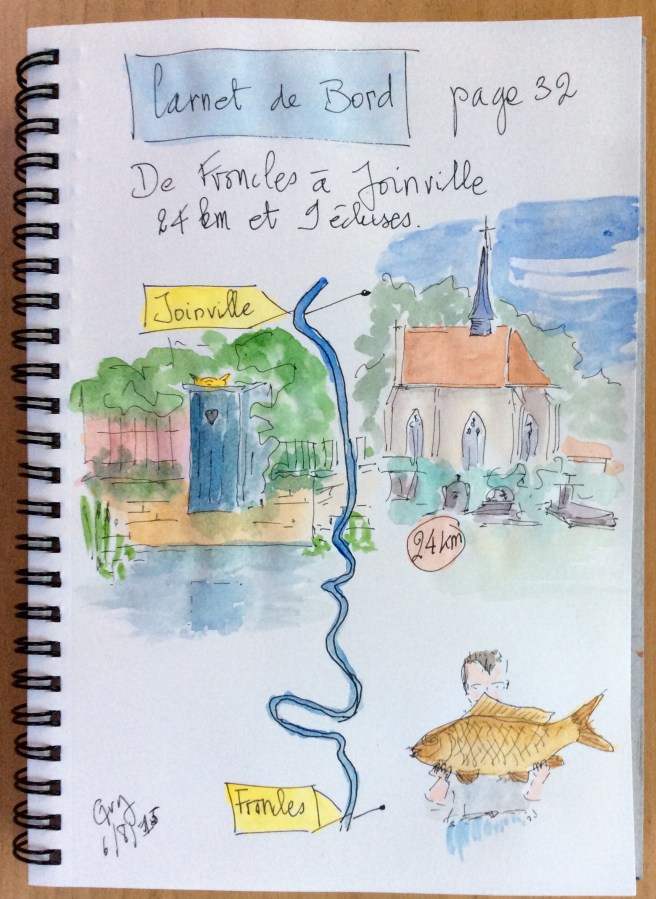 Carnet de Bord
page 32
De Froncles à Joinville
24 km et 9 écluses.
Joinville
24 km
Froncles
Guy
6/8/15